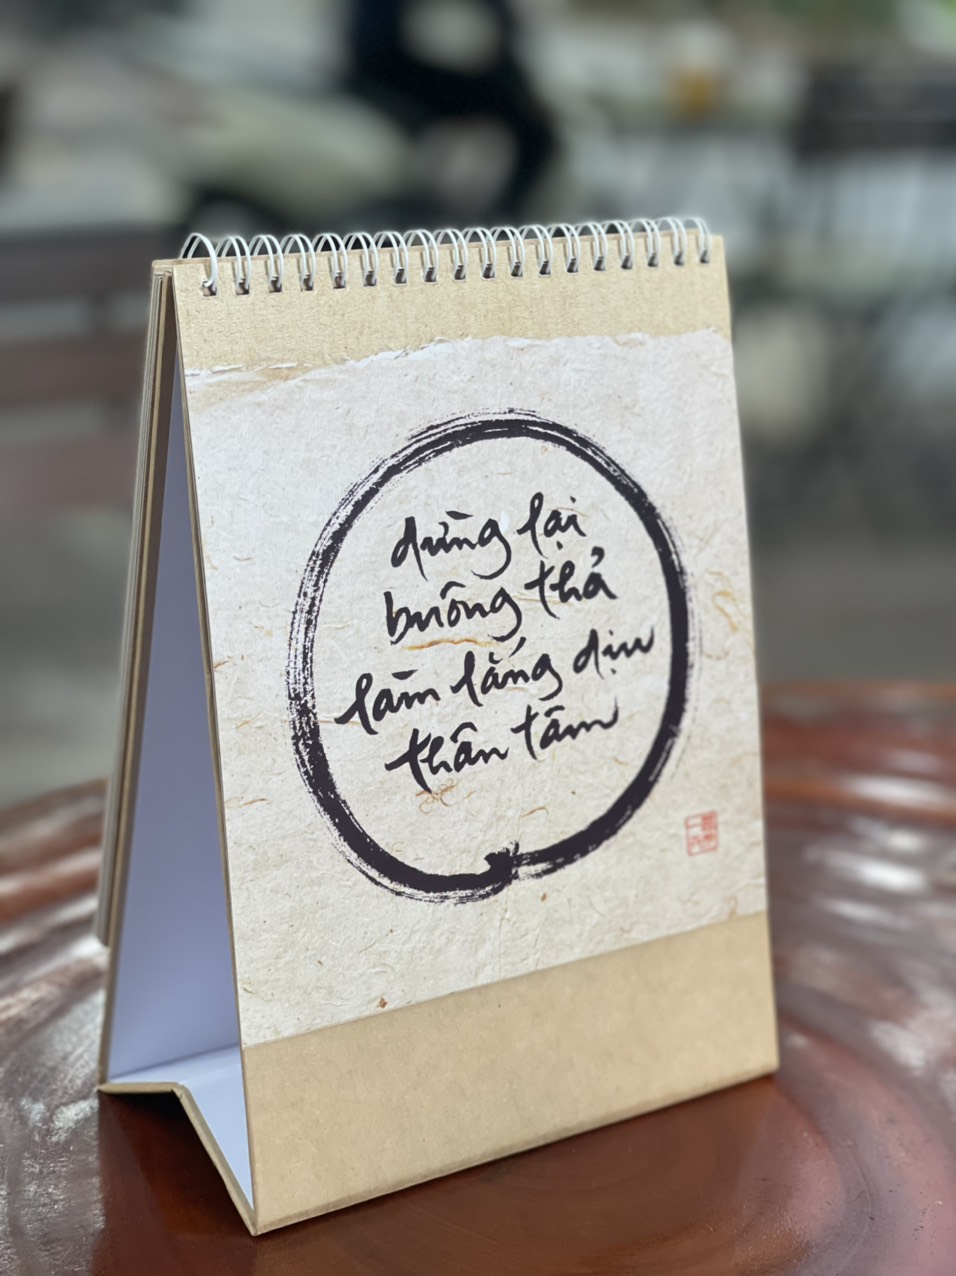 dừng lại
buông thả
làm lắng dịu
thân tâm